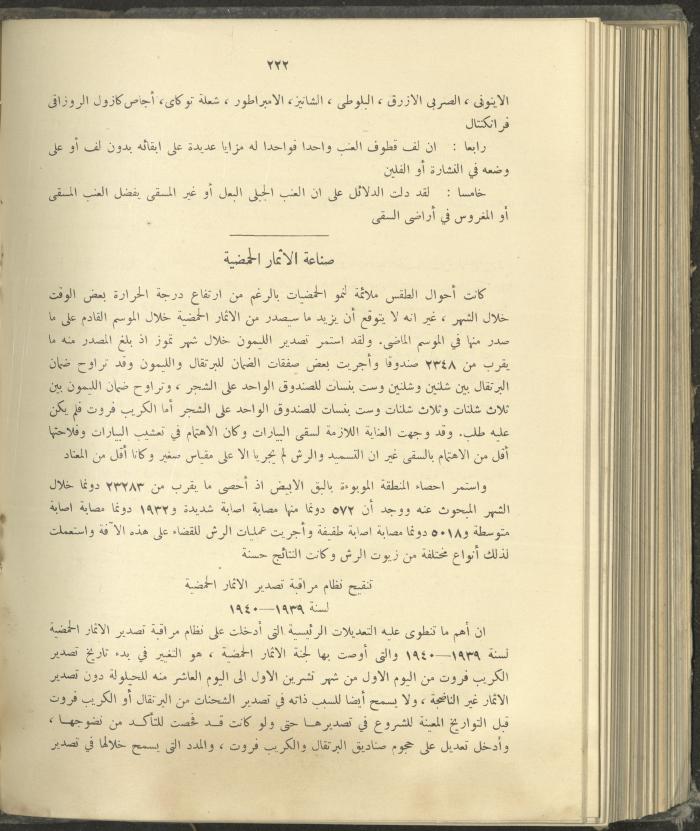 ٢٢٢
الايتونى ، الصربى الازرق ، البلوطى ، الشانيز، الامبراطور ، شعلة توكاى، أجاص كازول الروزاقى
فرانكنتال
رابعا : ان لف قطوف العنب واحدا فواحدا له مزايا عديدة على ابقائه بدون لف أو على
وضعه في النشارة أو الفلين
خامسا : لقد دلت الدلائل على ان العنب الجبلى البعل أو غير المسقى يفضل العنب المسقى
أو المغروس في أراضى السقى
صناعة الاثمار الحمضية
كانت أحوال الطقس ملائمة لنمو الحمضيات بالرغم من ارتفاع درجة الحرارة بعض الوقت
خلال الشهر ، غير انه لا يتوقع أن يزيد ما سيصدر من الاثمار الحمضية خلال الموسم القادم على ما
صدر منها في الموسم الماضى. ولقد استمر تصدير الليمون خلال شهر تموز اذ بلغ المصدر منه ما
يقرب من ٢٣٤٨ صندوقا وأجريت بعض صفقات الضمان للبرتقال والليمون وقد تراوح ضمان
البرتقال بين شلنين وشلنين وست بنسات للصندوق الواحد على الشجر ، وتراوح ضمان الليمون بين
ثلاث شلنات وثلاث شلنات وست بنسات للصندوق الواحد على الشجر أما الكريب فروت فلم يكن
عليه طلب. وقد وجهت العناية اللازمة لسقى البيارات وكان الاهتمام في تعشيب البيارات وفلاحتها
أقل من الاهتمام بالسقى غير ان التسميد والرش لم يجريا الا على مقياس صغير وكانا أقل من المعتاد
واستمر احصاء المنطقة الموبوءة بالبق الابيض اذ أحصى ما يقرب من ٢٣٢٨٣ دونما خلال
الشهر المبحوث عنه ووجد أن ٥٧٢ دونما منها مصابة اصابة شديدة و١٩٣٢ دونما مصابة اصابة
متوسطة و٥٠١٨ دونما مصابة اصابة طفيفة وأجريت عمليات الرش للقضاء على هذه الآفة واستعملت
لذلك أنواع مختلفة من زيوت الرش وكانت النتائج حسنة
تنقيح نظام مراقبة تصدير الاثمار الحمضية
لسنة ١٩٣٩—١٩٤٠
ان أهم ما تنطوى عليه التعديلات الرئيسية التى أدخلت على نظام مراقبة تصدير الاثمار الحمضية
لسنة ١٩٣٩—١٩٤٠ والتى أوصت بها لجنة الاثمار الحمضية ، هو التغيير في بدء تاريخ تصدير
الكريب فروت من اليوم الاول من شهر تشرين الاول الى اليوم العاشر منه للحيلولة دون تصدير
الاثمار غير الناضجة ، ولا يسمح أيضا للسبب ذاته في تصدير الشحنات من البرتقال أو الكريب فروت
قبل التواريخ المعينة للشروع في تصديرها حتى ولو كانت قد فحصت للتأكد من نضوجها ،
وأدخل تعديل على حجوم صناديق البرتقال والكريب فروت ، والمدد التى يسمح خلالها في تصدير